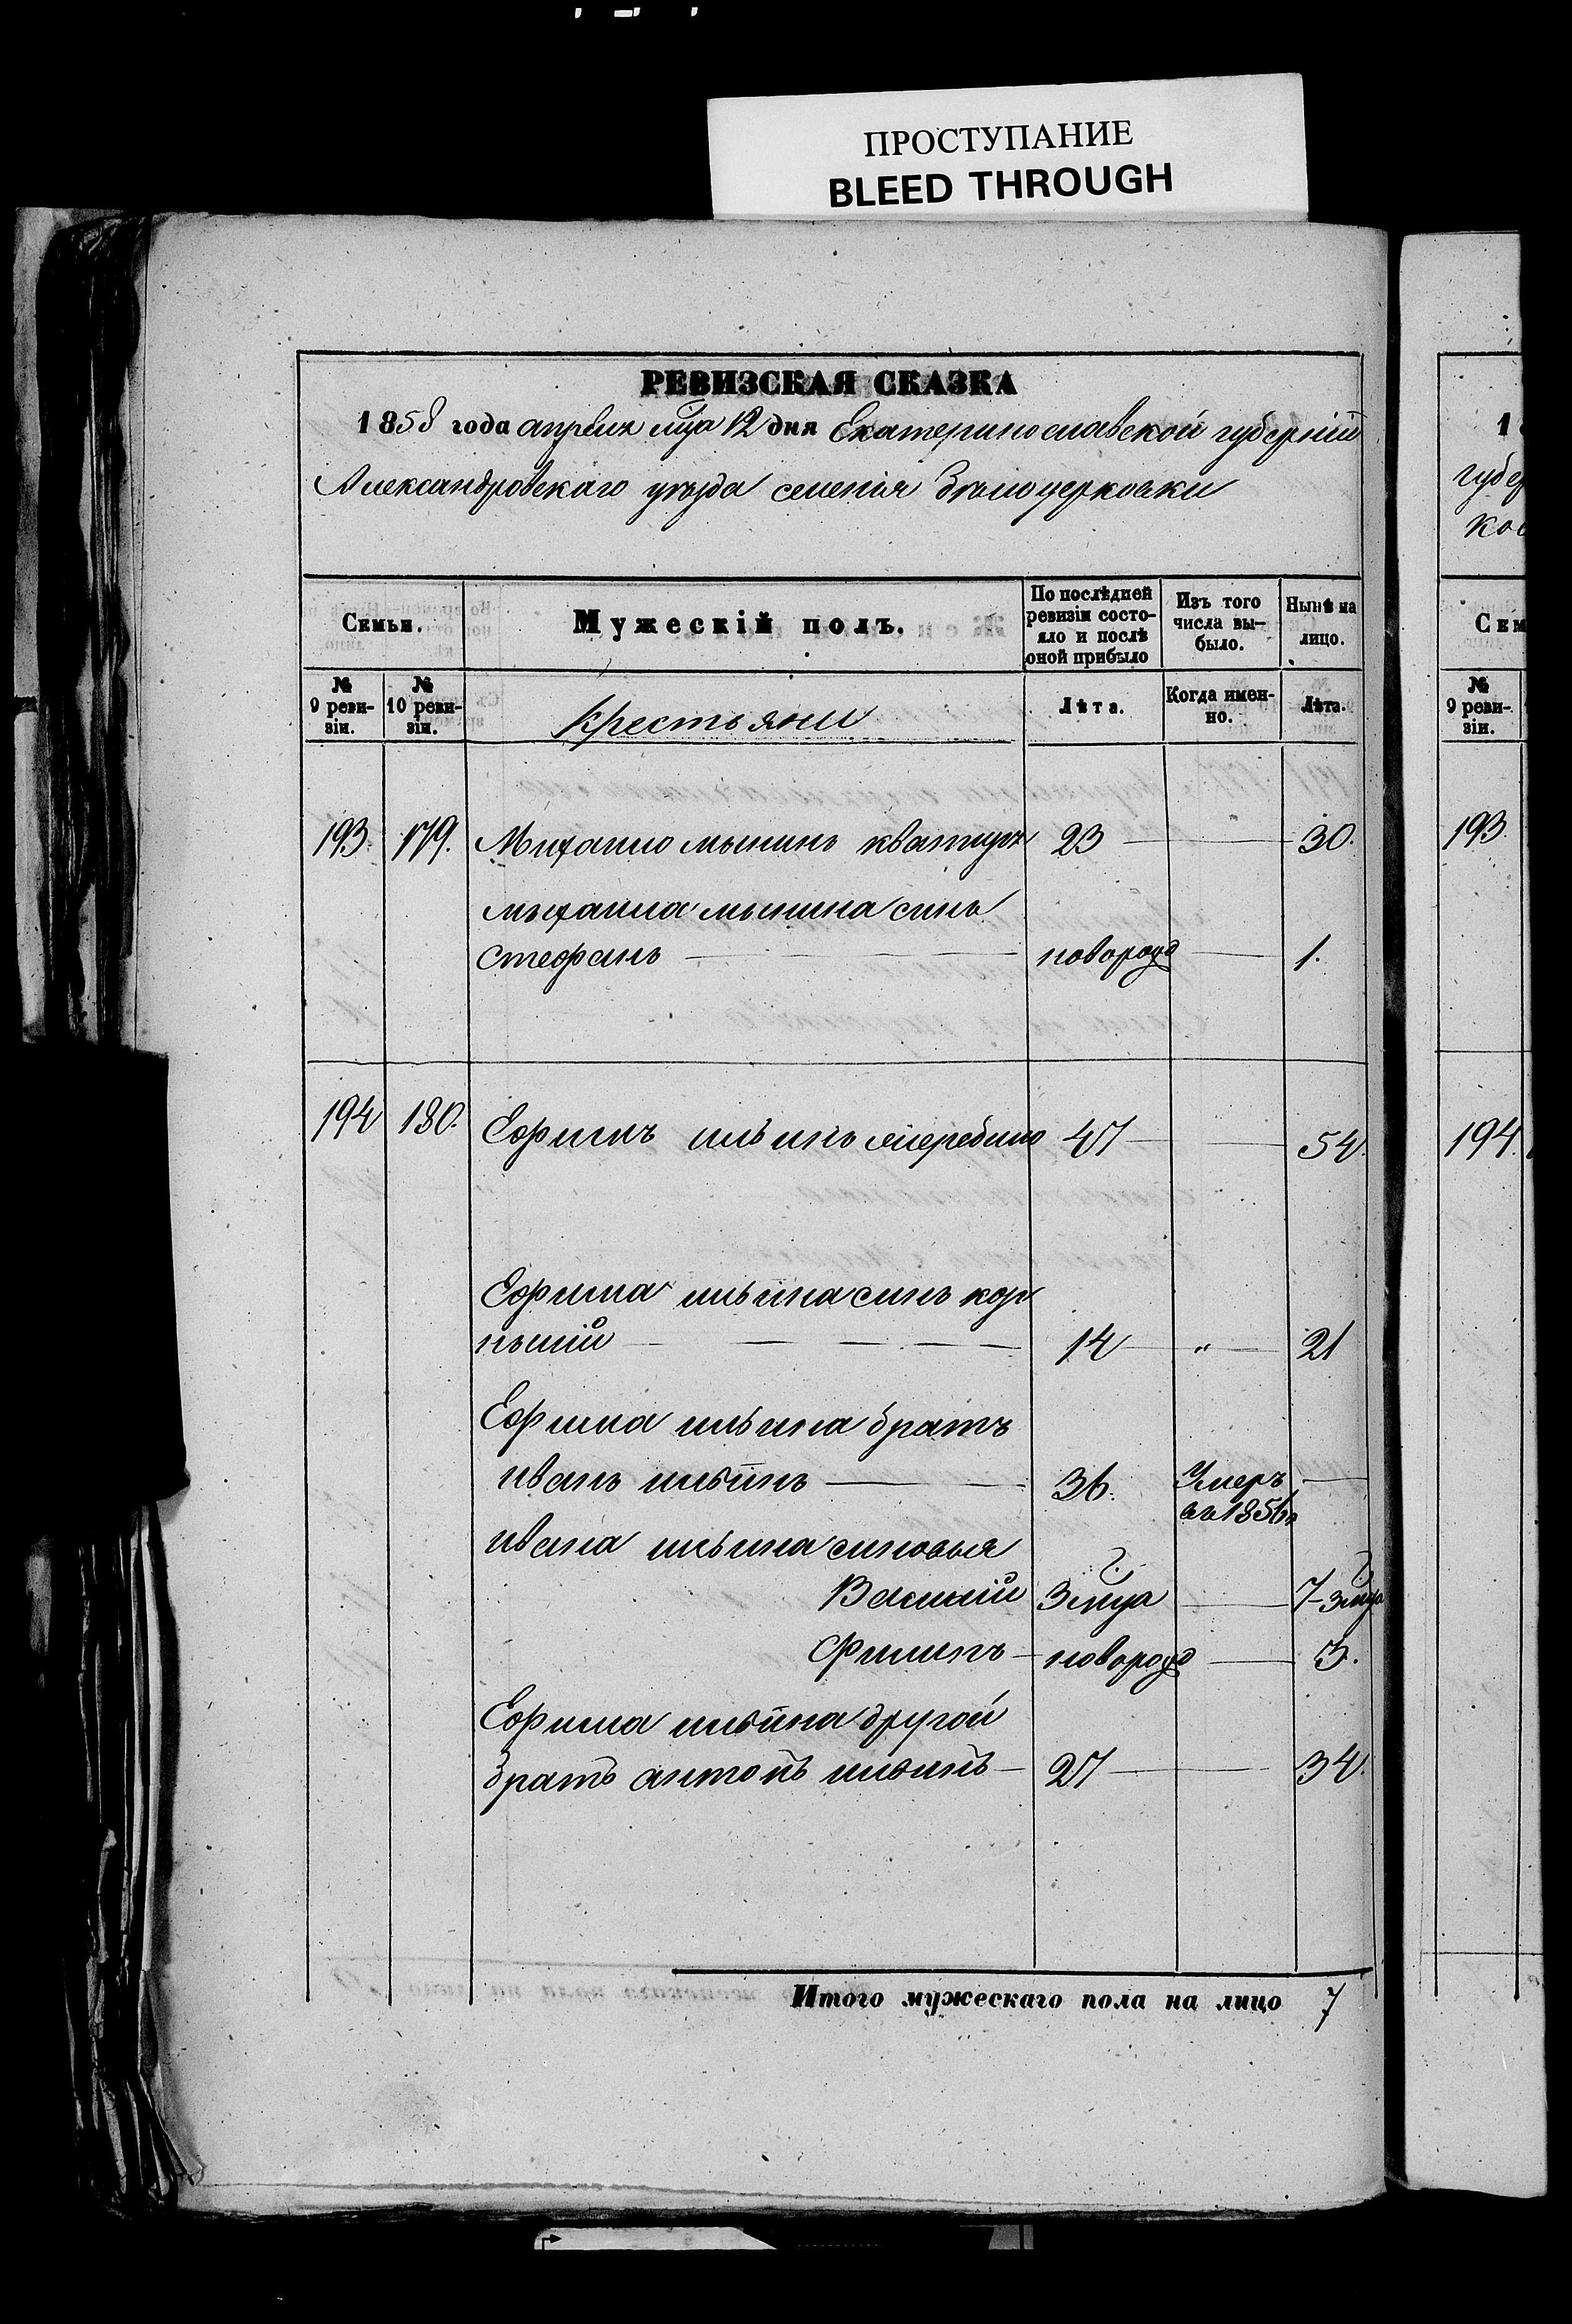 ПРОСТУПАНИЕ
BLEED THROUGH
РЕВИЗСКАЯ СКАЗКА
1858 года апреля мца 12 дня Екатеринославской губернии
Александровскаго уъзда селенія Бѣлоцерковки
Семьи.
Мужескій полъ.
По послѣдней ревизіи состояло и послѣ оной прибыло
Изъ того числа выбыло.
Нынѣ на лицо.
№ 9 ревизіи.
№ 10 ревизіи.
Крестьяни
Лѣта.
Когда именно.
Лѣта.
193. 179. Михаило 23 30.
сынъ
Стефанъ новорожд 1.
194 180. Ефимъ ильинъ 47 54.
Ефима ильина синъ кор
ньшій 14 " 21
Ефима ильина братъ
иванъ ильинъ 36. Умеръ
въ 1856 г
ивана ильина синовья
Василій 3 мца 7-3 мца
Филипъ новорожд 3.
Ефима ильина другой
братъ антонъ ильинъ 27 34.
Итого мужескаго пола на лицо 7
1
губер
ков
Сем
№ 9 ревизіи.
193.
194.